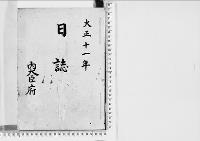 大正十一年
日誌
内大臣府